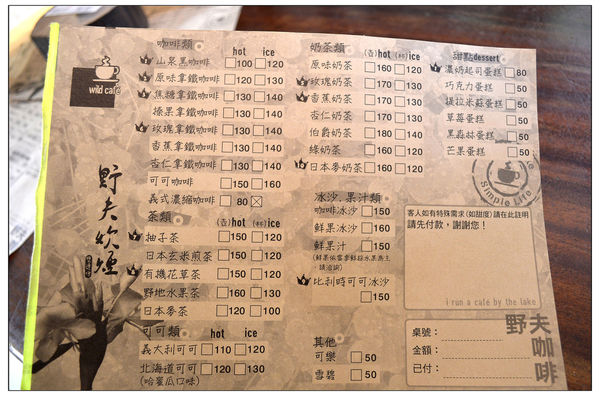 wild café
野夫炊煙
咖啡類 hot ice
山泉黑咖啡 100 120
原味拿鐵咖啡 120 130
焦糖拿鐵咖啡 130 140
榛果拿鐵咖啡 130 140
玫瑰拿鐵咖啡 130 140
香蕉拿鐵咖啡 130 140
杏仁拿鐵咖啡 130 140
可可咖啡 150 160
義式濃縮咖啡 80
茶類 (壺)hot (杯)ice
柚子茶 150 120
日本玄米煎茶 150 120
有機花草茶 150 120
野地水果茶 160 130
日本麥茶 100 120
可可類 hot ice
義大利可可 110 120
北海道可可 120 130
(哈蜜瓜口味)
奶茶類 (壺)hot (杯)ice
原味奶茶 160 120
玫瑰奶茶 170 130
香蕉奶茶 170 130
杏仁奶茶 170 130
伯爵奶茶 180 140
綠奶茶 160 120
日本麥奶茶 160 120
冰沙.果汁類
咖啡冰沙 150
鮮果冰沙 160
鮮果汁 150
(鮮果依當季鮮採水果為主
請洽詢)
比利時可可冰沙
150
其他
可樂 50
雪碧 50
甜點dessert
濃奶起司蛋糕 80
巧克力蛋糕 50
提拉米蘇蛋糕 50
草莓蛋糕 50
黑森林蛋糕 50
芒果蛋糕 50
Simple Life
客人如有特殊需求(如甜度)請在此註明
請先付款，謝謝您！
i run a cafe by the lake
桌號：
金額：
已付：
野夫咖啡